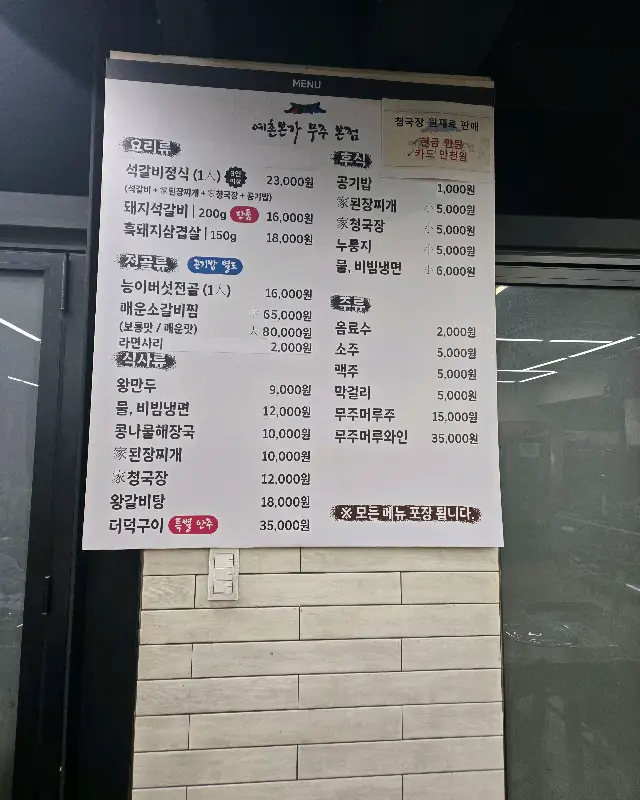 MENU
예촌본가 무주 본점
청국장 원재료 판매
현금 만원
카드 만천원
요리류
석갈비정식 (1人) 2인 이상 23,000원
(석갈비 + 家된장찌개 + 家청국장 + 공기밥)
돼지석갈비 | 200g 단품 16,000원
흑돼지삼겹살 | 150g 18,000원
전골류 공기밥 별도
능이버섯전골 (1人) 16,000원
매운소갈비찜 中 65,000원
(보통맛 / 매운맛) 大 80,000원
라면사리 2,000원
식사류
왕만두 9,000원
물, 비빔냉면 12,000원
콩나물해장국 10,000원
家된장찌개 10,000원
家청국장 12,000원
왕갈비탕 18,000원
더덕구이 특별 안주 35,000원
후식
공기밥 1,000원
家된장찌개 小 5,000원
家청국장 小 5,000원
누룽지 小 5,000원
물, 비빔냉면 小 6,000원
주류
음료수 2,000원
소주 5,000원
맥주 5,000원
막걸리 5,000원
무주머루주 15,000원
무주머루와인 35,000원
※ 모든 메뉴 포장 됩니다.